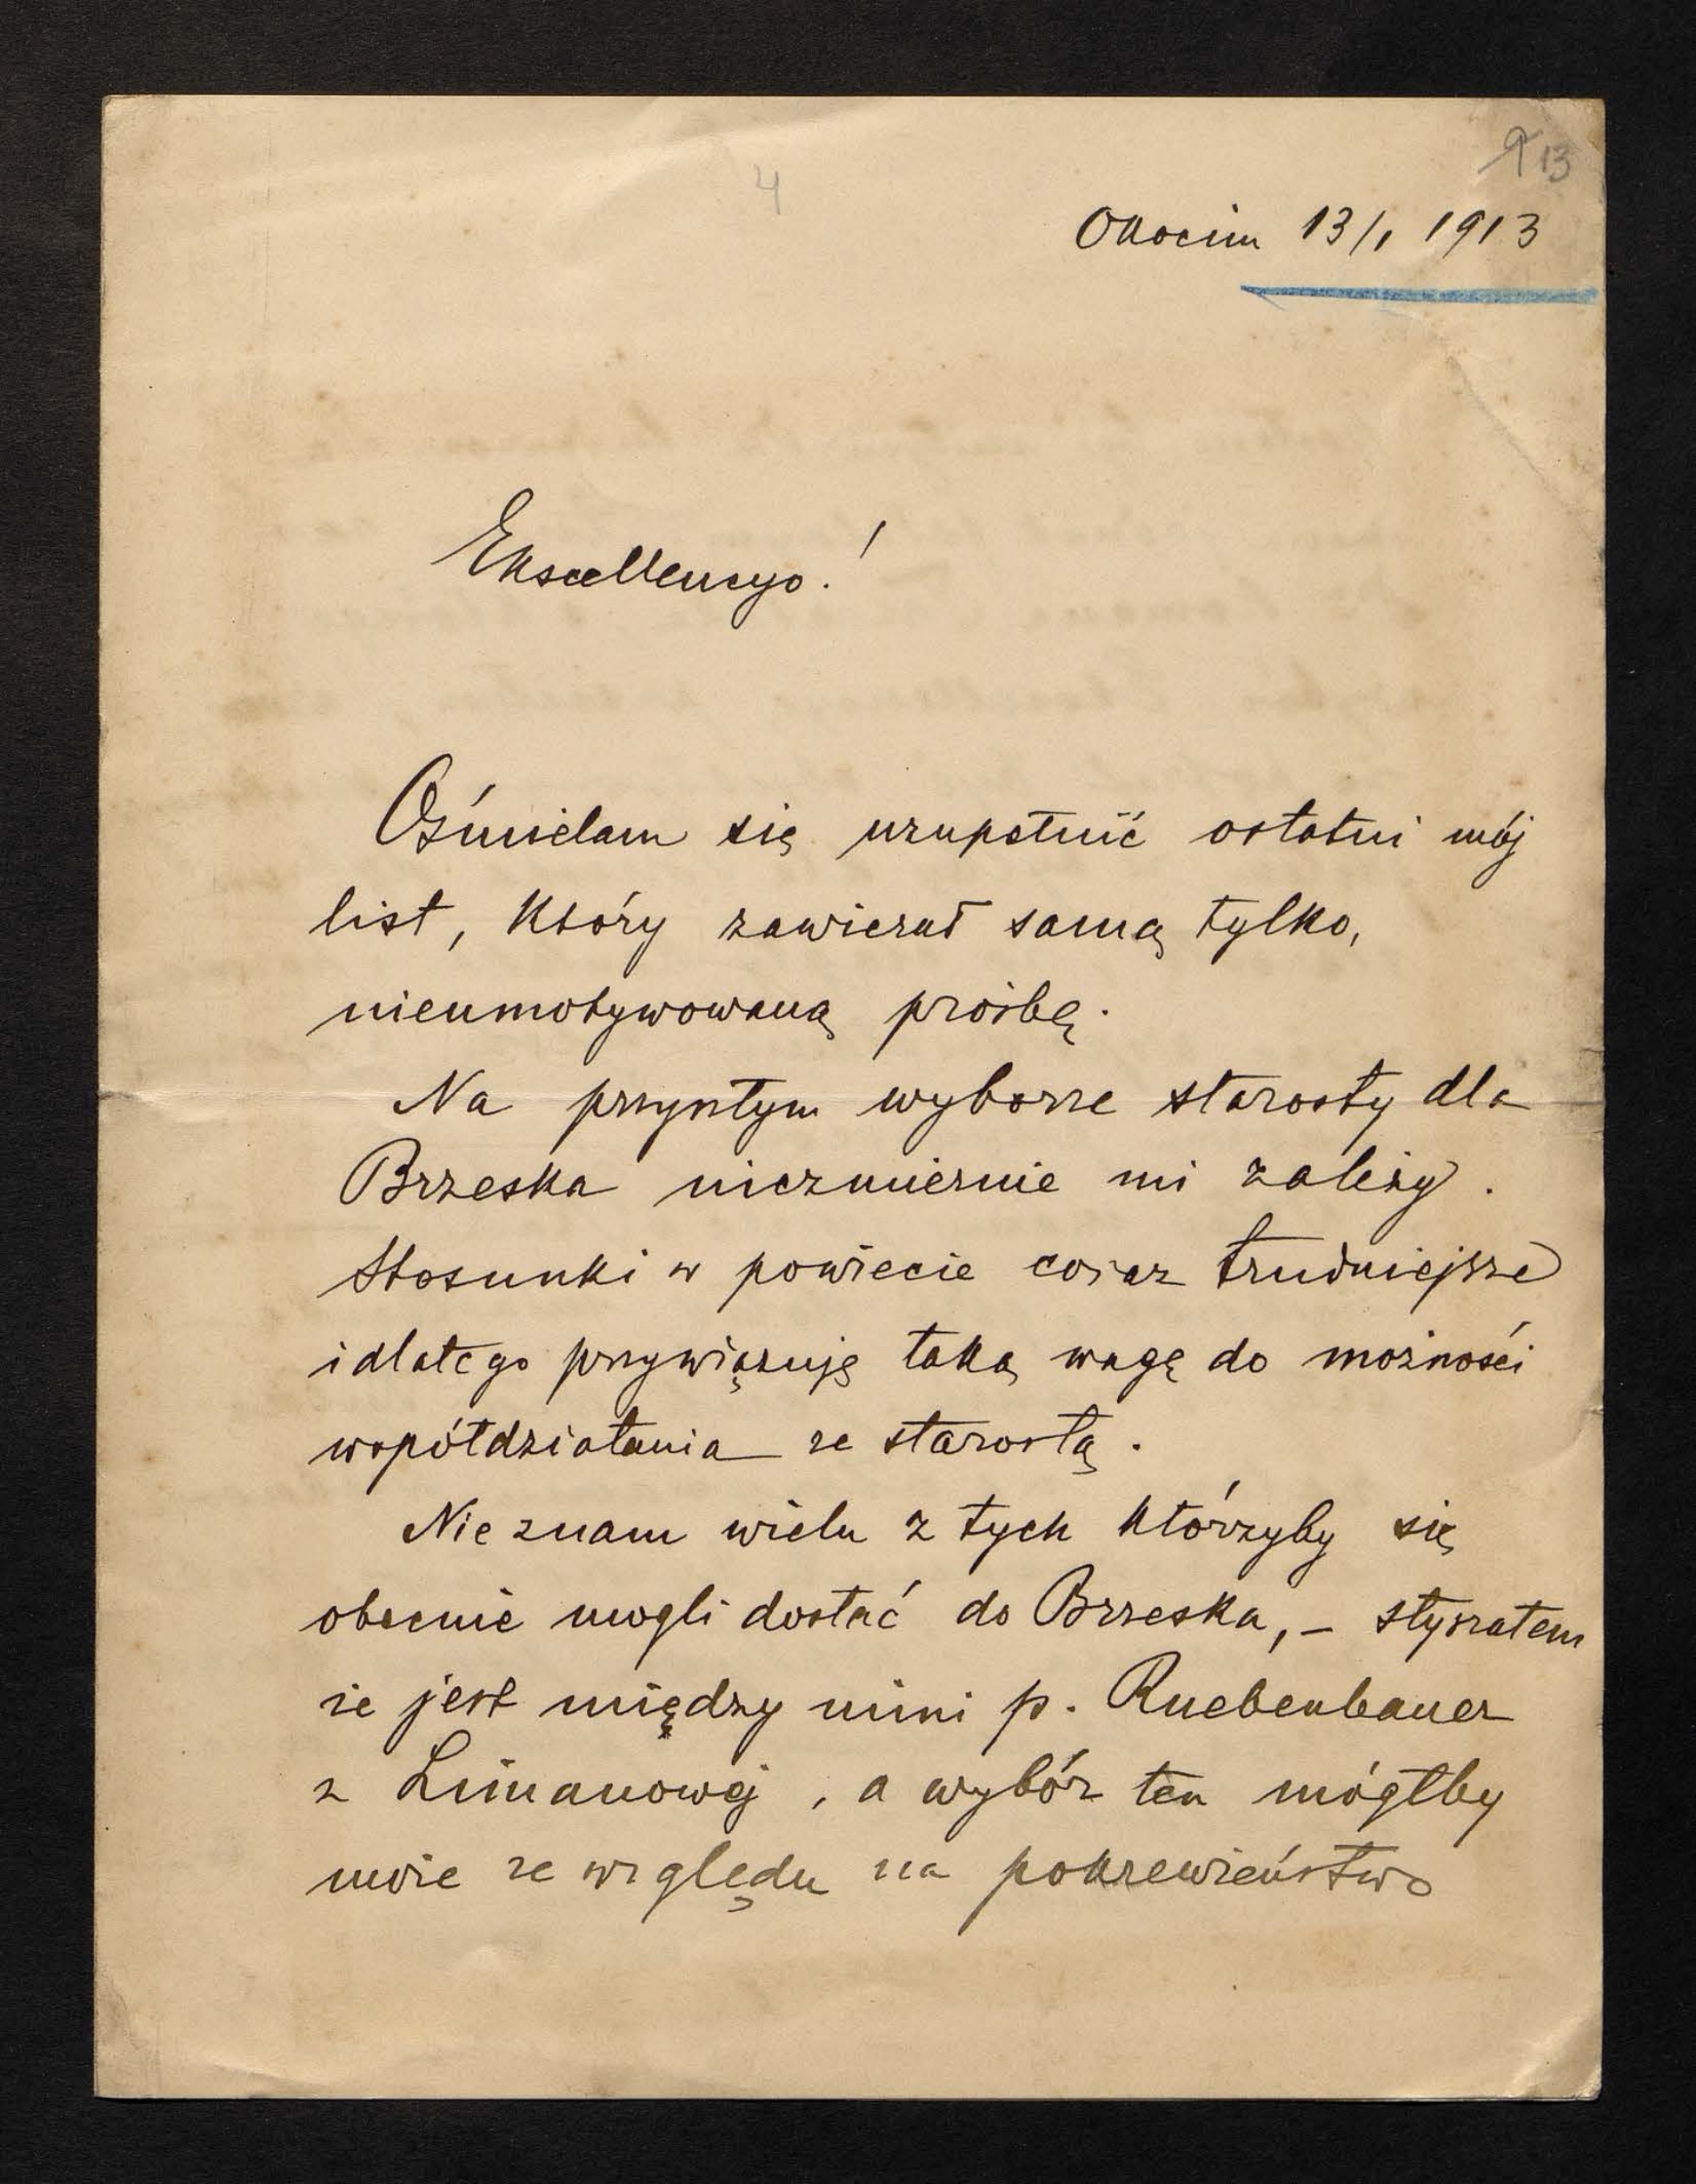 4
13
Okocim 13/1 1913
Ekscellencyo!
Ośmielam się uzupełnić ostatni mój
list, który zawierał samą tylko,
nieumotywowaną prośbę.
Na przyszłym wyborze starosty dla
Brzeska niezmiernie mi zależy.
Stosunki w powiecie coraz trudniejsze
i dlatego przywiązuję taką wagę do możności
współdziałania ze starostą.
Nie znam wielu z tych którzyby się
obecnie mogli dostać do Brzeska, – słyszałem
że jest między nimi p. Ruebenbauer
z Limanowej, a wybór ten mógłby
może ze względu na pokrewieństwo